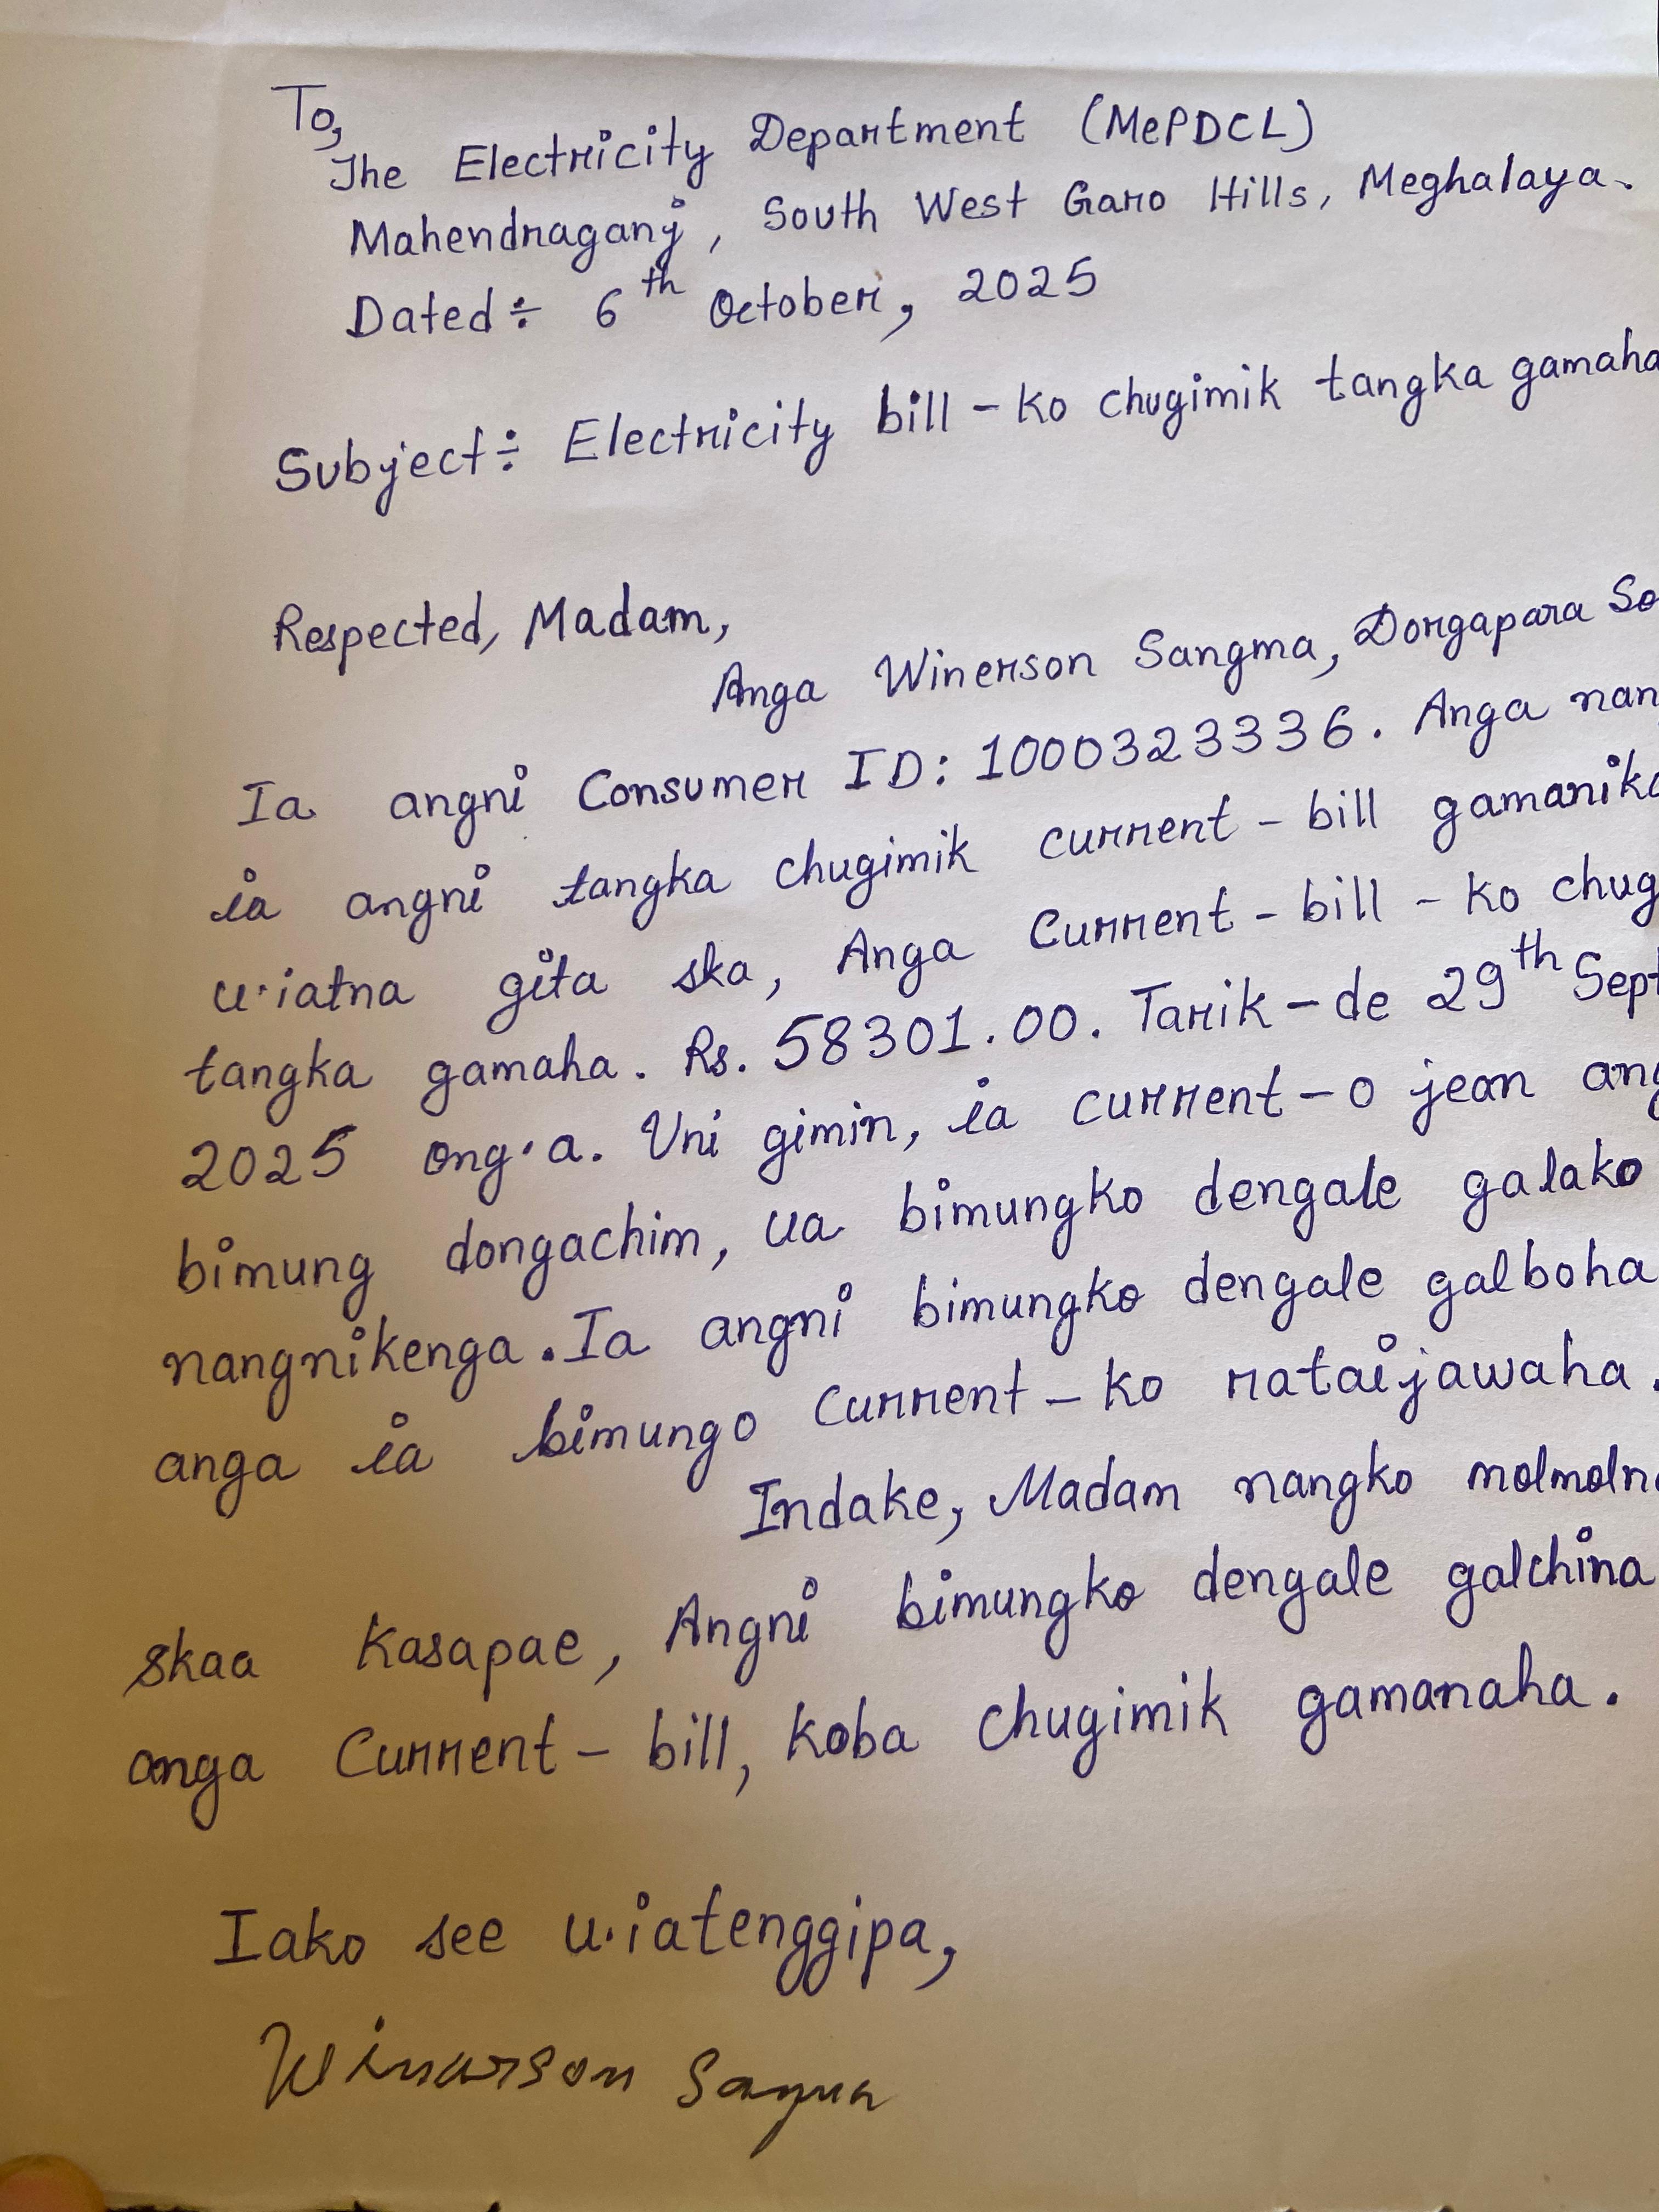 To,
The Electricity Department (MePDCL)
Mahendraganj, South West Garo Hills, Meghalaya.
Dated ÷ 6th October, 2025
Subject ÷ Electricity bill - ko chugimik tangka gamaha
Respected, Madam,
Anga Winerson Sangma, Dorgapara So
Ia angni Consumer ID: 1000323336. Anga nang
ia angni tangka chugimik current - bill gamanik
u·iatna gita ska, Anga Current - bill - ko chug
tangka gamaha. Rs. 58301.00. Tarik - de 29th Sept
2025 ong·a. Uni gimin, ia current - o jean ang
bimung dongachim, ua bimungko dengale galako
nangnikenga. Ia angni bimungko dengale galboha
anga ia bimungo Current - ko rataijawaha.
Indake, Madam nangko molmoln
skaa kasapae, Angni bimungko dengale galchina
anga Current - bill, koba chugimik gamanaha.
Iako see u·iatenggipa,
Winerson Sangma